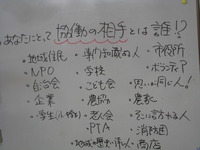 あなたにとって協働の相手とは誰!?
・地域住民
・NPO
・自治会
・企業
・学生(小、中、高)
・専門知識のある人
・学校
・こども会
・農協
・老人会
・PTA
・地域の歴史を語る人
・市役所
・ボランティア
・思いが同じ人!
・農家
・そこに訪れる人
・消防団
・商店